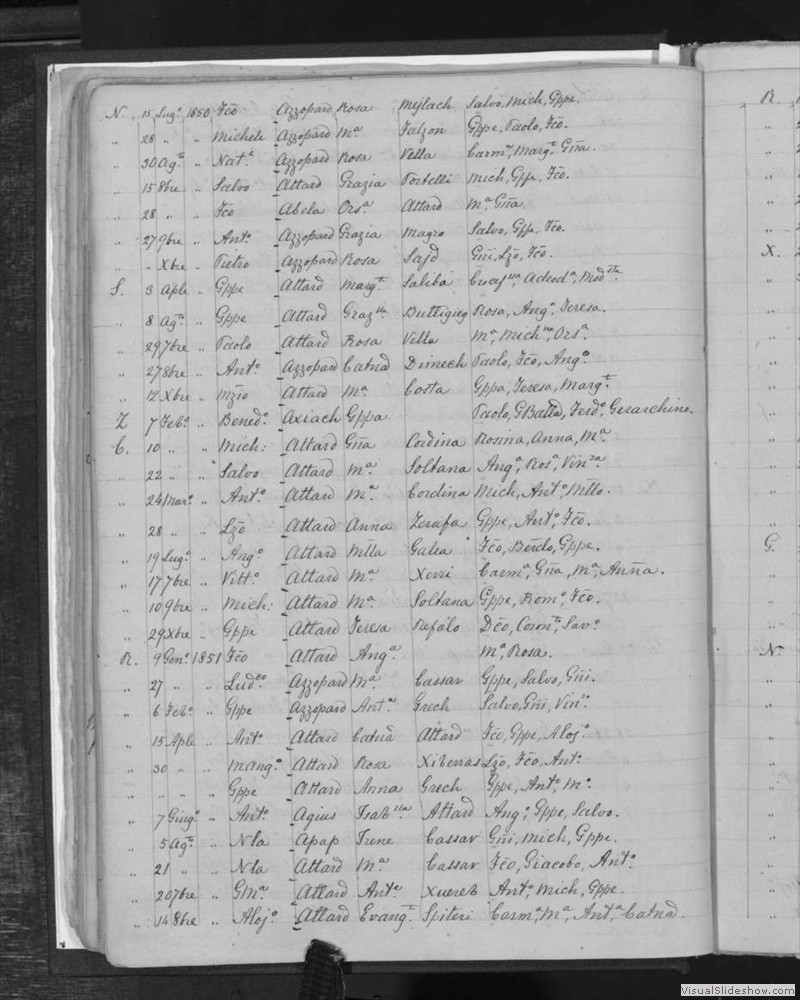 N. 15 Lugo 1850 Fc̃o Azzopard Rosa Mejlach Salvo, Mich, Gppe.
" 28 " " Michele Azzopard Ma Falzon Gppe, Paolo, Fc̃o.
" 30 Agto " Nat.e Azzopard Rosa Vella Carmo, Margta, Gña.
" 15 8bre " Salvo Attard Grazia Portelli Mich, Gppe, Fc̃o.
" 28 " " Fc̃o Abela Orsa Attard Ma Gña.
" 27 9bre " Anto Azzopard Grazia Magro Salvo, Gppe, Fc̃o.
" " Xbre " Pietro Azzopard Rosa Sajd Gñi, Lz̃o, Fc̃o.
S. 3 Aple " Gppe Attard Margta Saliba
" 8 Agto " Gppe Attard Grazlla Buttigieg Rosa, Anga, Teresa.
" 29 7bre " Paolo Attard Rosa Vella Ma, Michna, Orsa.
" 27 8bre " Anto Azzopard Catnã Dimech Paolo, Fc̃o, Ango
" 12 Xbre " Nz̃io Attard Ma Costa Gppa, Teresa, Margta
Z 7 Febo " Benedo Axiach Gppa Paolo, GBatta, Ferdo, Gerarchino.
C. 10 " " Mich: Attard Gña Cordina Rosina, Anna, Ma
" 22 " " Salvo Attard Ma Soltana Anga, Rosa, Vinza
" 24 Maro " Anto Attard Ma Cordina Mich, Anto,
" 28 " " Lz̃o Attard Anna Zerafa Gppe, Anto, Fc̃o.
" 19 Lugo " Ango Attard Galea Fc̃o, Gppe.
" 17 7bre " Vitto Attard Ma Xerri Carma, Gña, Ma, Anña.
" 10 9bre " Mich: Attard Ma Soltana Gppe, Romo, Fc̃o.
" 29 Xbre " Gppe Attard Teresa Refalo Dc̃o, Carmo, Savo
R. 9 Geno 1851 Fc̃o Attard Anga Ma, Rosa.
" 27 " " Ludco Azzopard Ma Cassar Gppe, Salvo, Gñi.
" 6 Febo " Gppe Azzopard Anta Grech Salvo, Gñi, Vinzo
" 15 Aple " Anto Attard Catnã Attard Fc̃o, Gppe, Alojo
" 30 " " Mango Attard Rosa Xiberras Lz̃o, Fc̃o, Anto
" " " Gppe Attard Anna Grech Gppe, Anto, Mo
" 7 Giugo " Anto Agius Isablla Attard Ango, Gppe, Salvo.
" 5 Agto " Nla Apap Irene Cassar Gñi, Mich, Gppe.
" 21 " " Nla Attard Ma Cassar Fc̃o, Giacobo, Anto
" 20 7bre " Glma Attard Anta Xuereb Anto, Mich, Gppe.
" 14 8bre " Alojo Attard Evangta Spiteri Carma, Ma, Anta, Catnã.
R.
X.
G.
N.
VisualSlideshow.com